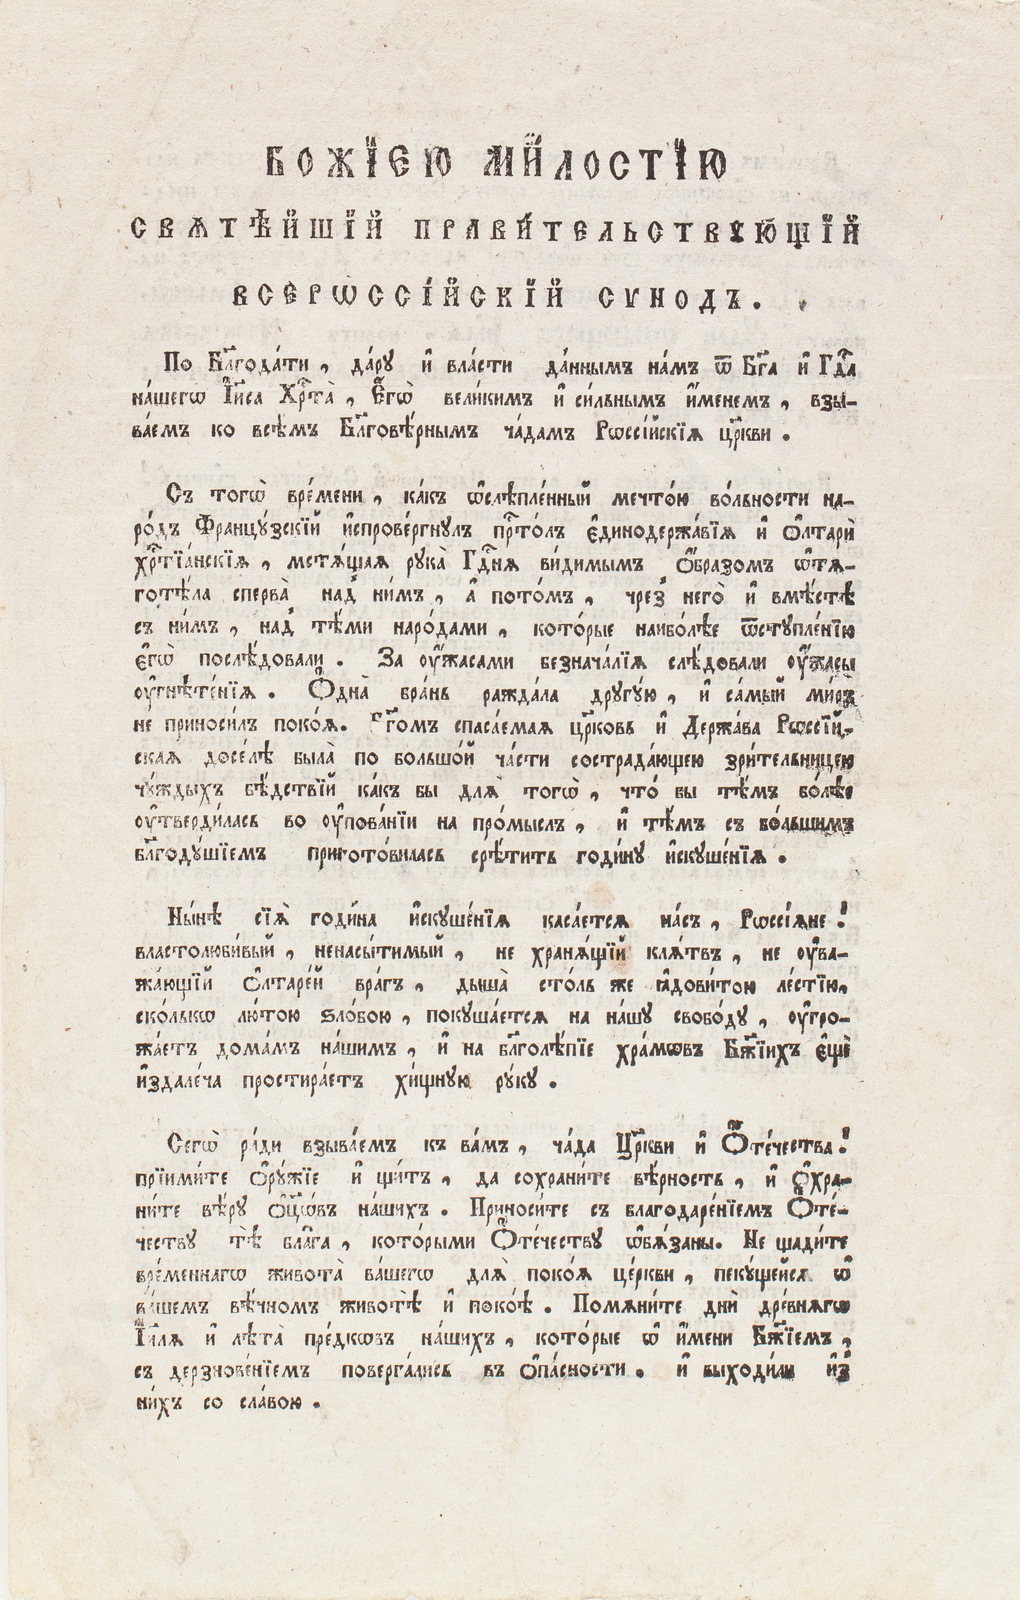 БО́ЖЇЕЮ МИ́ЛОСТЇЮ
СВѦТѢ́ЙШЇЙ ПРАВИ́ТЕЛЬСТВꙊЮЩЇЙ
ВСЕРѠССІ́ЙСКЇЙ СѴНОДЪ.
По Бл҃года́ти, да́ру и҆ вла́сти да́ннымъ на́мъ ѿ Бг҃а и҆ Гдⷭ҇а
на́шегѡ І҆и҃са Хрⷭ҇та̀, Є҆гѡ̀ вели́кимъ и҆ си́льнымъ и҆́менемъ, взы-
ва́емъ ко всѣ̑мъ Бл҃говѣ́рнымъ ча́дамъ Рѡссі́йскїѧ цр҃кви.
Съ тогѡ̀ вре́мени, ка́къ ѡ҆слѣпле́нный мечто́ю во́льности на-
ро́дъ Францу́зскїй и҆спрове́ргнулъ прⷭ҇то́лъ є҆динодержа́вїѧ и҆ ѻ҆лтари̑
хрⷭ҇тїа́нскїѧ, мстѧ́щаѧ рука̀ Гдⷭ҇нѧ ви́димымъ ѻ҆́бразомъ ѡ҆тѧ-
готѣ́ла сперва̀ над̾ ни́мъ, а҆ пото́мъ, чрез̾ него̀ и҆ вмѣ́стѣ
съ ни́мъ, над̾ тѣ́ми наро́дами, кото́рые наибо́лѣе ѿступле́нїю
є҆гѡ̀ послѣ́довали. За оу҆́жасами безнача́лїѧ слѣ́довали оу҆́жасы
оу҆гнѣте́нїѧ. Ѻ҆дна̀ бра́нь ражда́ла другу́ю, и҆ са́мый ми́ръ
не приноси́лъ поко́ѧ. Бг҃омъ спаса́емаѧ цр҃ковь и҆ Держа́ва Рѡссїй-
скаѧ досе́лѣ была̀ по большо́й ча́сти сострада́ющею зри́тельницею
чу́ждыхъ бѣ́дствїй ка́къ бы для тогѡ̀, что́ бы тѣ́мъ бо́лѣе
оу҆тверди́лась во оу҆пова́нїи на про́мыслъ, и҆ тѣ́мъ съ бо́льшимъ
бл҃году́шїемъ пригото́вилась срѣ́тить годи́ну и҆скуше́нїѧ.
Ны́нѣ сїѧ̀ годи́на и҆скуше́нїѧ каса́етсѧ на́съ, Рѡссі́ѧне!
властолюби́вый, ненасы́тимый, не хранѧ́щїй клѧ́твъ, не оу҆ва-
жа́ющїй ѻ҆лтаре́й вра́гъ, дыша̀ сто́ль же ꙗ҆дови́тою ле́стїю,
ско́лькѡ лю́тою ѕло́бою, покуша́етсѧ на на́шу свобо́ду, оу҆гро-
жа́етъ дома́мъ на́шимъ, и҆ на бл҃голѣ́пїе хра́мѡвъ Бж҃їихъ є҆щѐ
и҆здале́ча простира́етъ хи́щную ру́ку.
Сегѡ̀ ра́ди взыва́емъ къ ва́мъ, ча́да Цр҃кви и҆ Ѻ҆те́чества!
прїими́те ѻ҆ру́жїе и҆ щи́тъ, да сохрани́те вѣ́рность, и҆ ѻ҆хра-
ни́те вѣ́ру ѻ҆ц҃є́въ на́шихъ. Приноси́те съ благодаре́нїемъ Ѻ҆те́-
честву тѣ̀ бла̑га, кото́рыми Ѻ҆те́честву ѡ҆бѧ́заны. Не щади́те
вре́меннагѡ живота̀ ва́шегѡ для̀ поко́ѧ це́ркви, пеку́щейсѧ ѡ҆
ва́шемъ вѣ́чномъ животѣ̀ и҆ поко́ѣ. Помѧни́те дни̑ дре́внѧгѡ
І҆и҃лѧ и҆ лѣ̑та пре́дкѡвъ на́шихъ, кото́рые ѡ҆ и҆́мени Бж҃їемъ,
съ дерзнове́нїемъ поверга́лись въ ѻ҆па́сности, и҆ выходи́ли и҆з̾
ни́хъ со сла́вою.